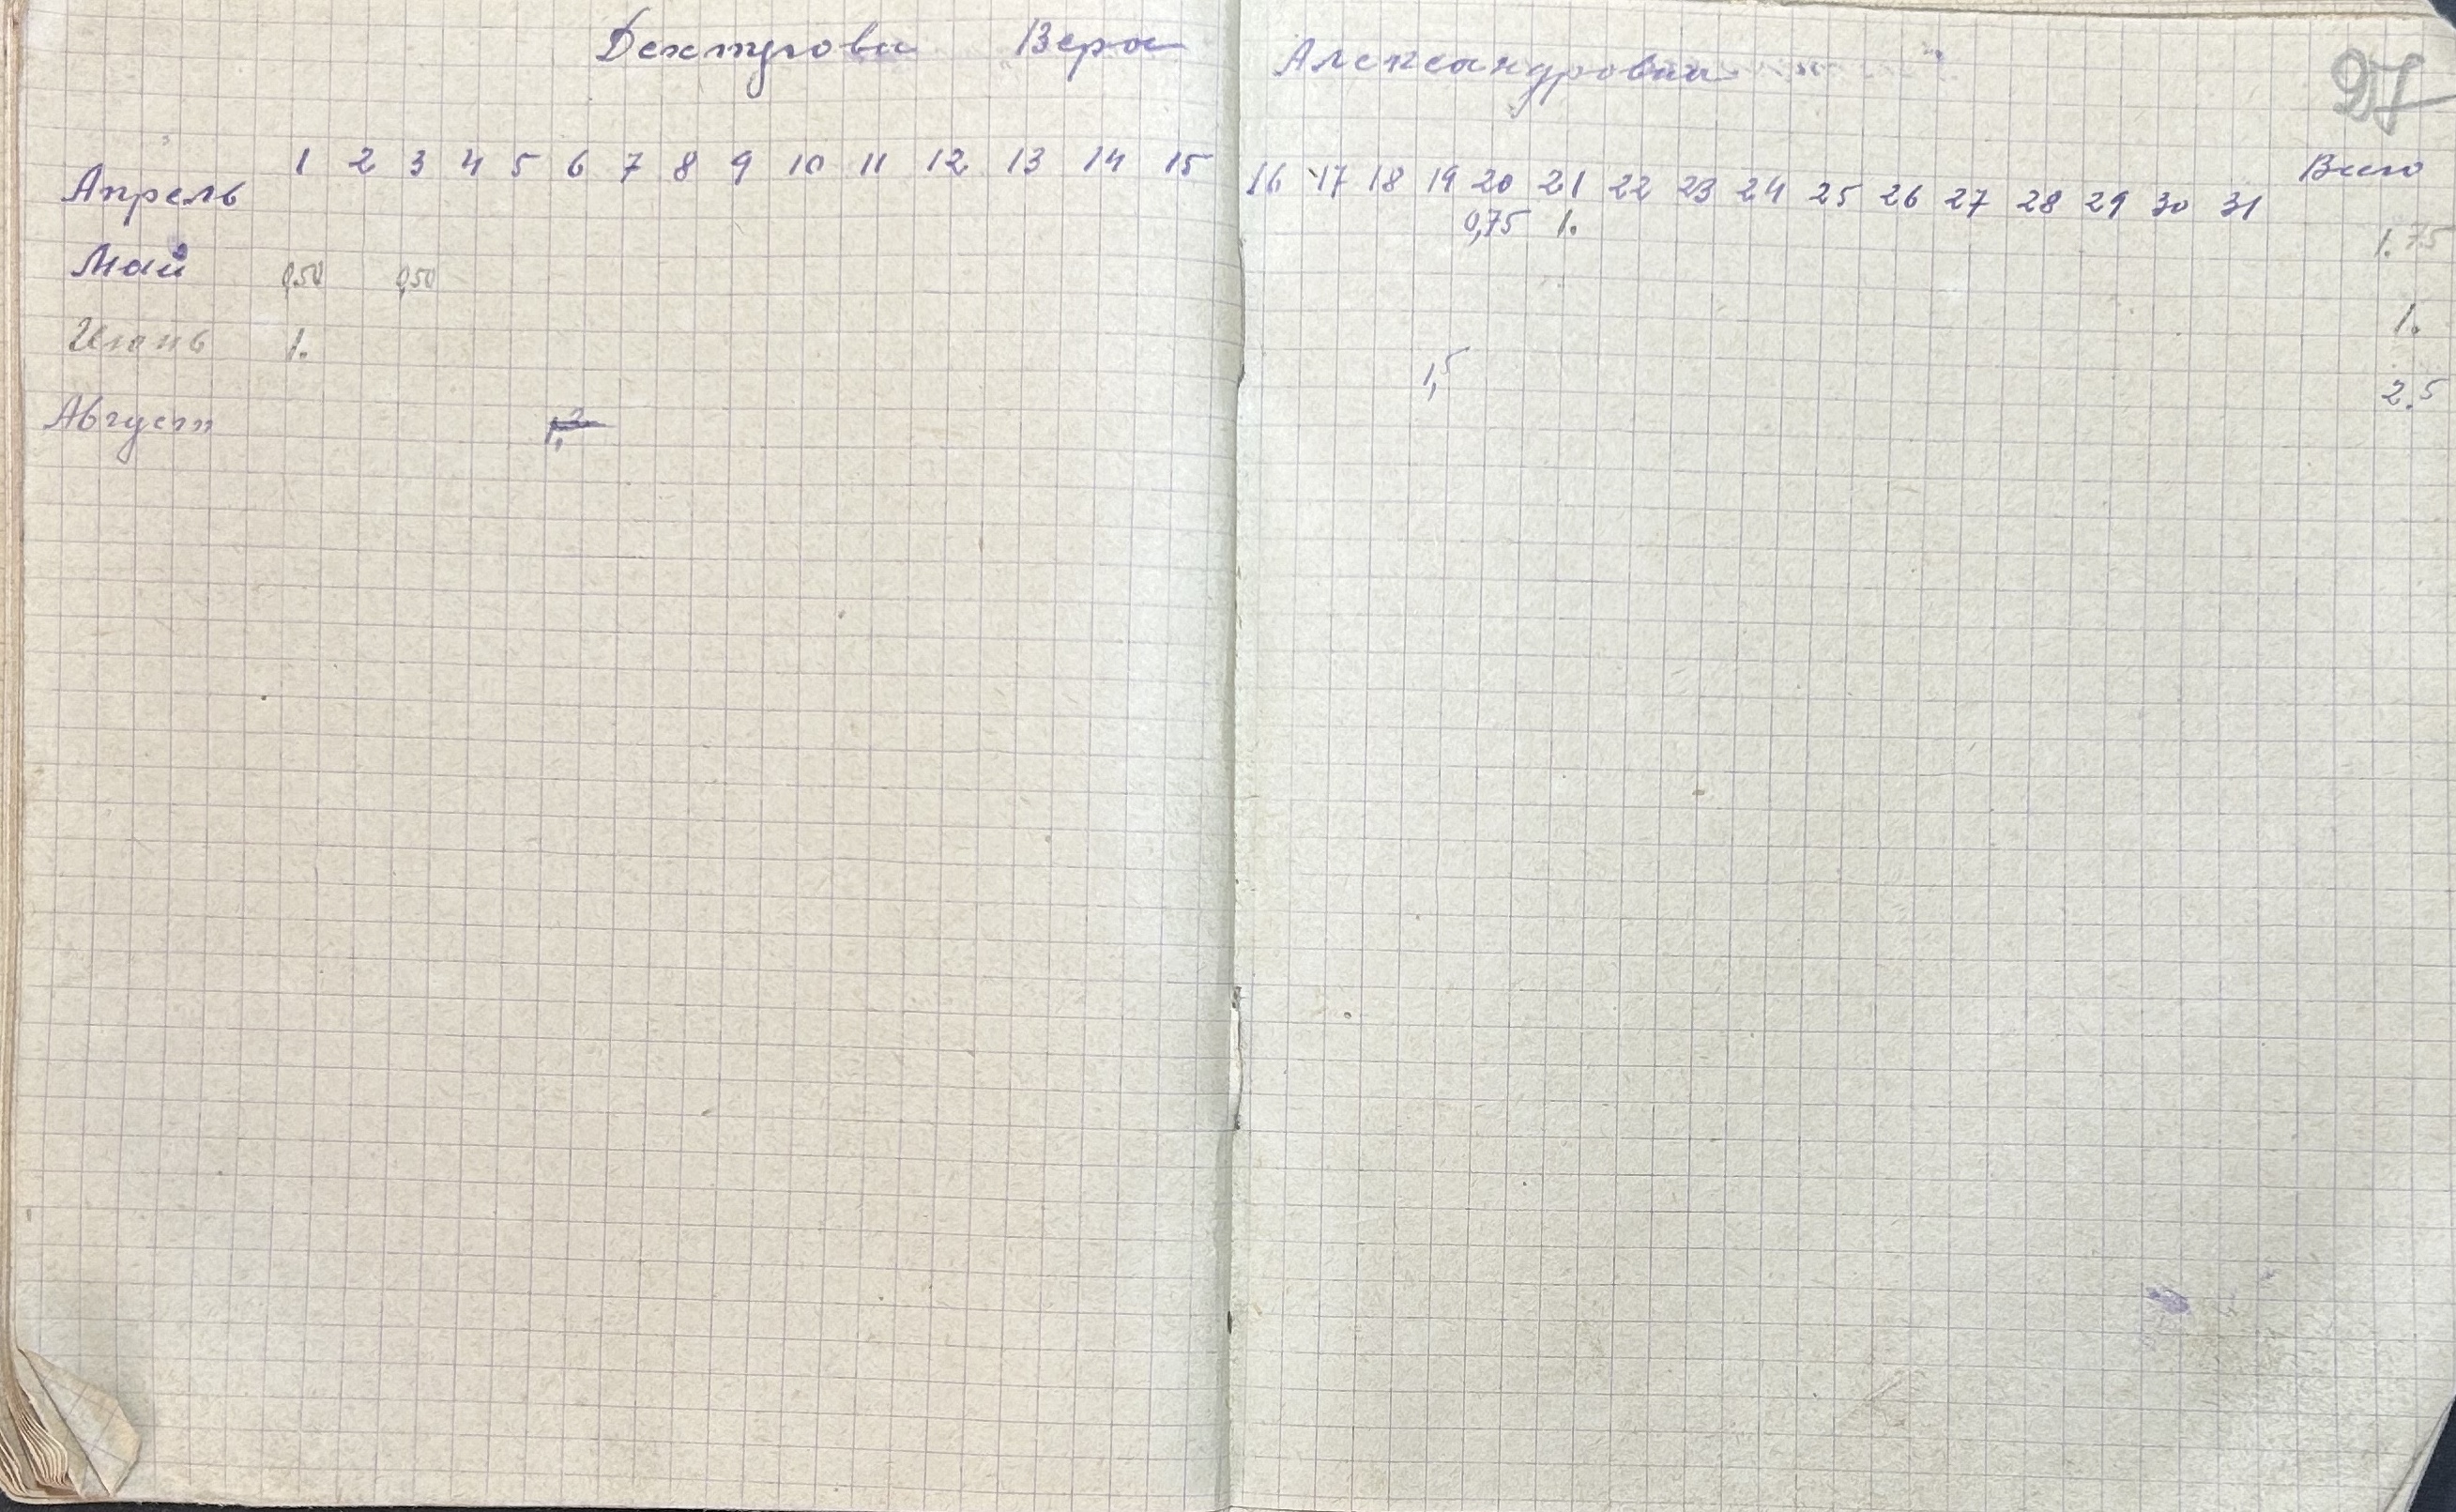 Дехтярова Вера Александровна
27
1 2 3 4 5 6 7 8 9 10 11 12 13 14 15 16 17 18 19 20 21 22 23 24 25 26 27 28 29 30 31 Всего
Апрель 0,75 1. 1.75
Май 0,50 0,50 1.
Июнь 1. 1,5 2.5
Август